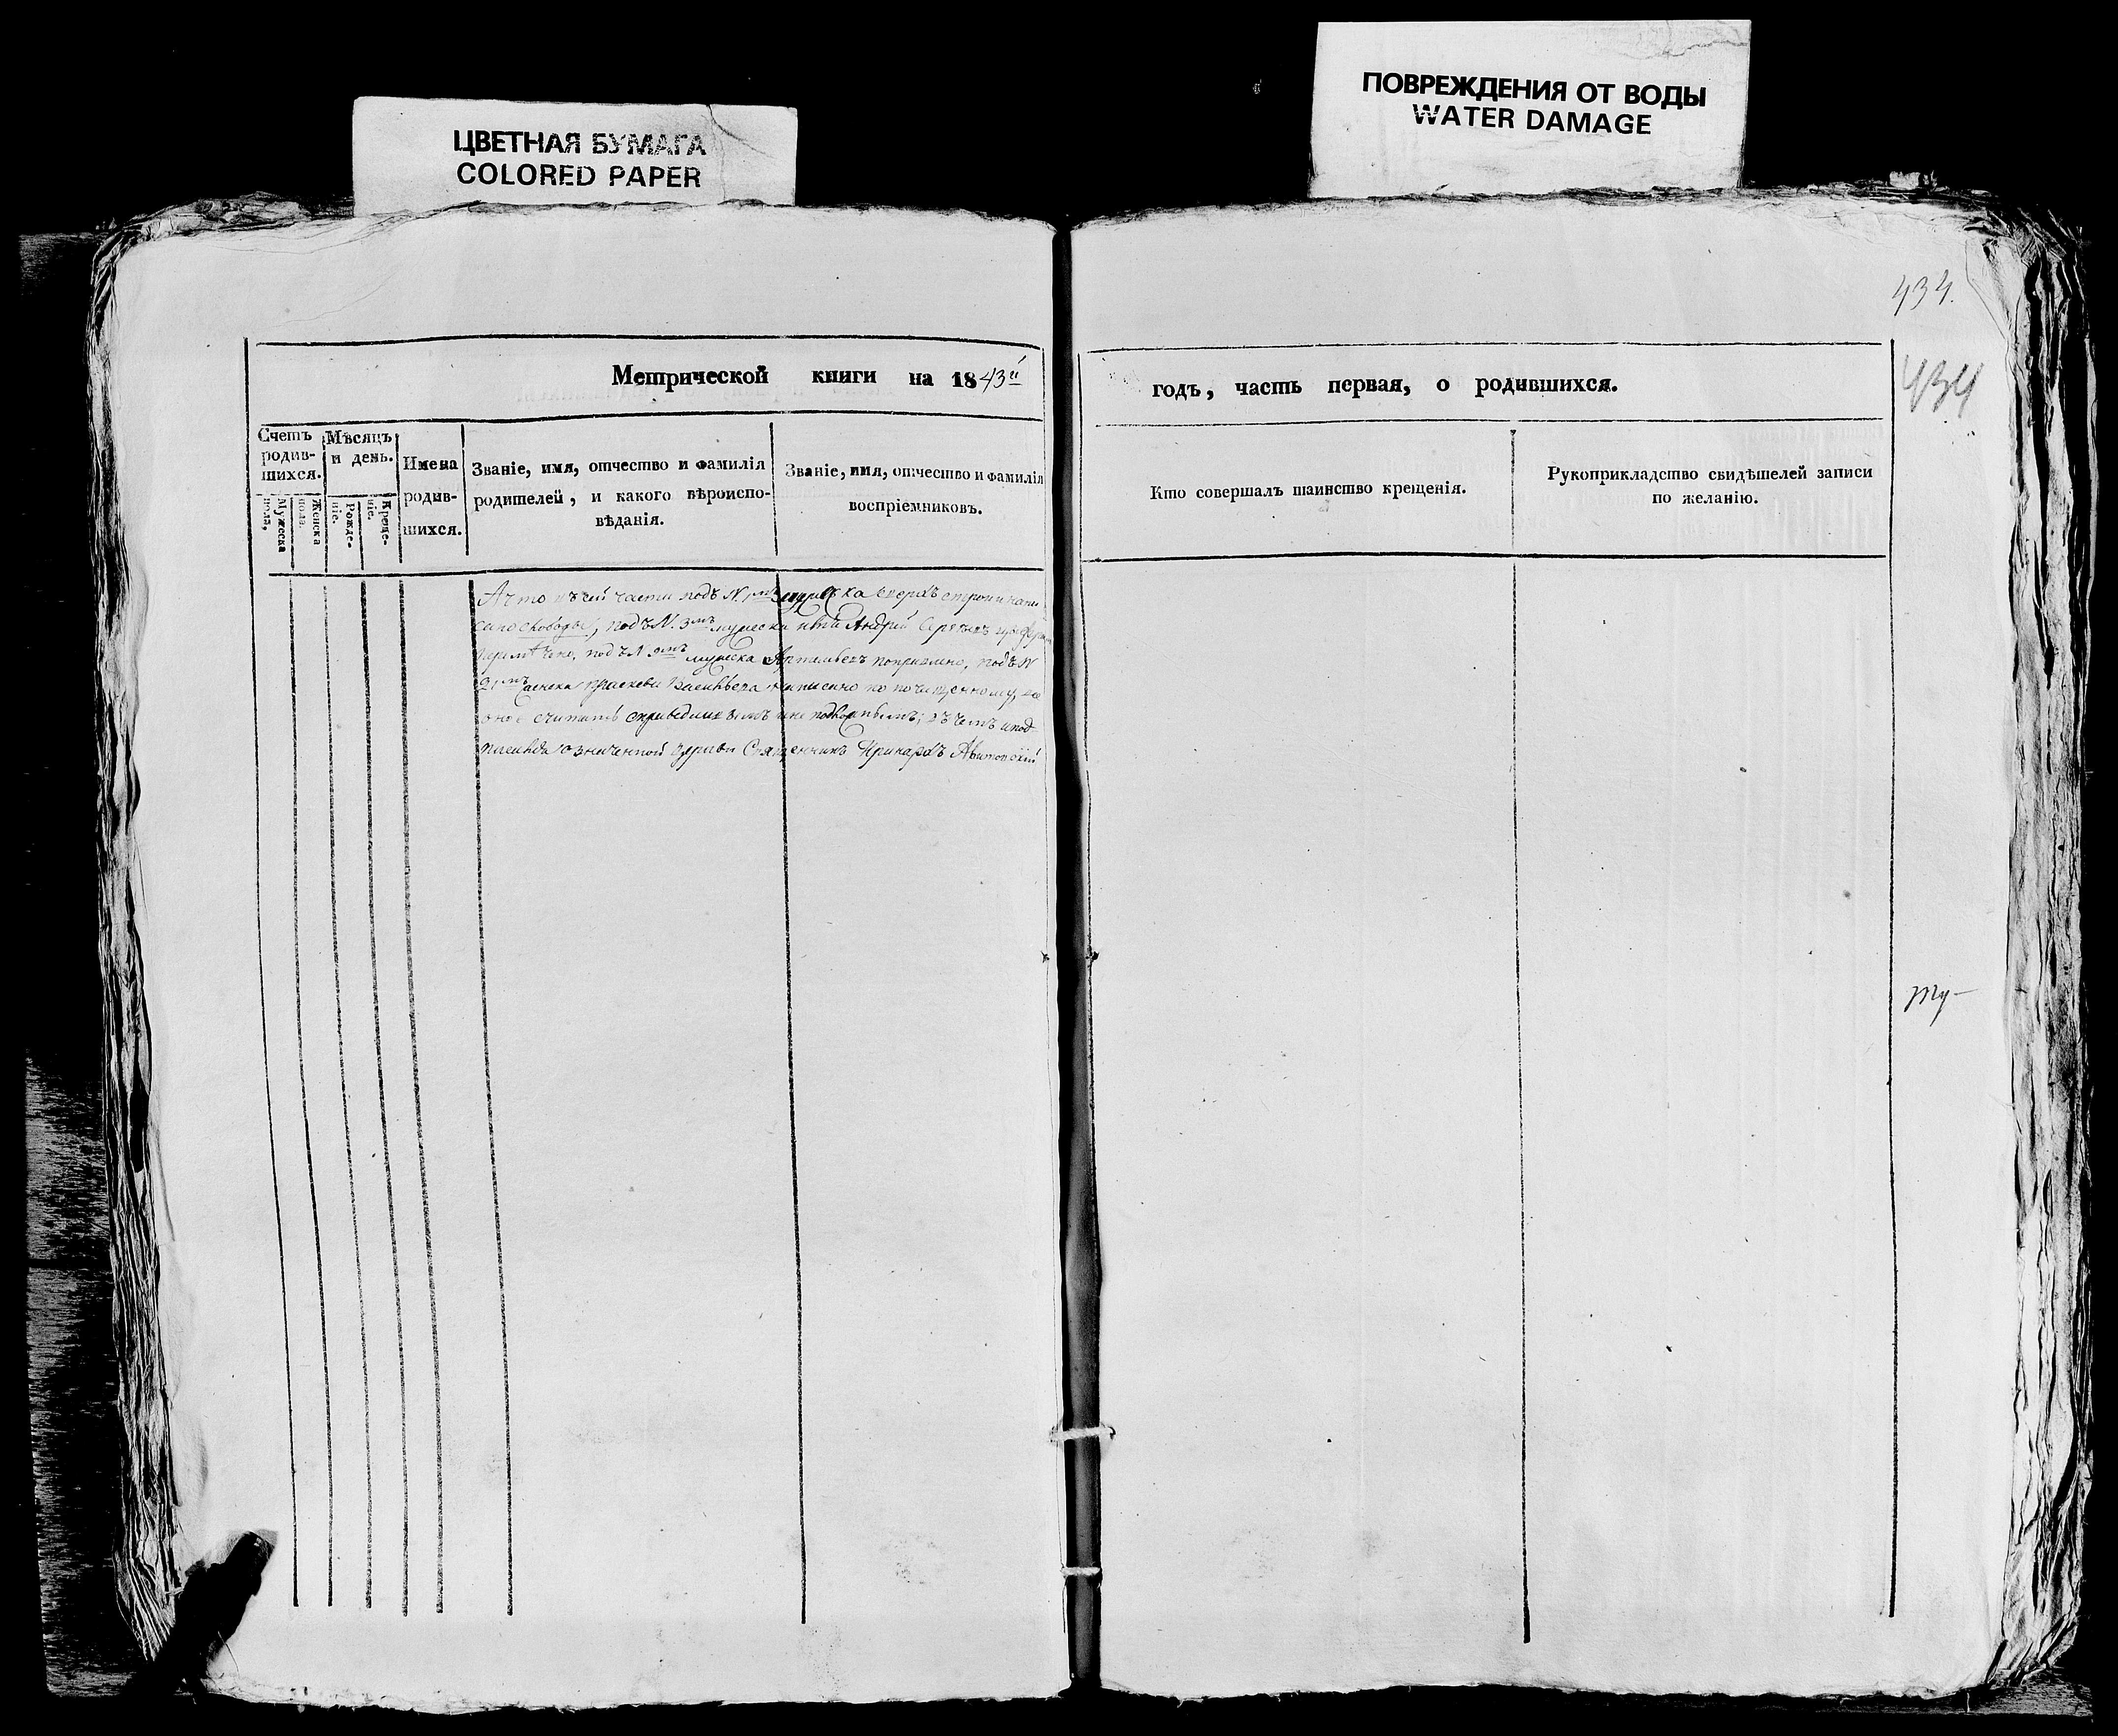 ЦВЕТНАЯ БУМАГА
COLORED PAPER
ПОВРЕЖДЕНИЯ ОТ ВОДЫ
WATER DAMAGE
434.
434
Метрической книги на 1843й
годъ, часть первая, о родившихся.
Счетъ родив-
шихся.
Мужеска пола,
Женска пола.
Мѣсяцъ
и день.
Рожде-
ніе.
Креще-
ніе.
Имена
родив-
шихся.
Званіе, имя, отчество и фамилія
родителей, и какого вѣроиспо-
вѣданія.
Званіе, имя, отчество и фамилія
воспріемниковъ.
Кто совершалъ таинство крещенія.
Рукоприкладство свидѣтелей записи
по желанію.
А что въ сей части подъ N. 1мъ сверхъ строки напи
сано подъ N. 3мъ мужеска Андрей
подъ N мужеска поправлено, подъ N
21мъ женска написано по почищенному, то
оное считать справедливымъ а не подложнымъ; въ чемъ и под
писался означенной церкви Священникъ Иринархъ